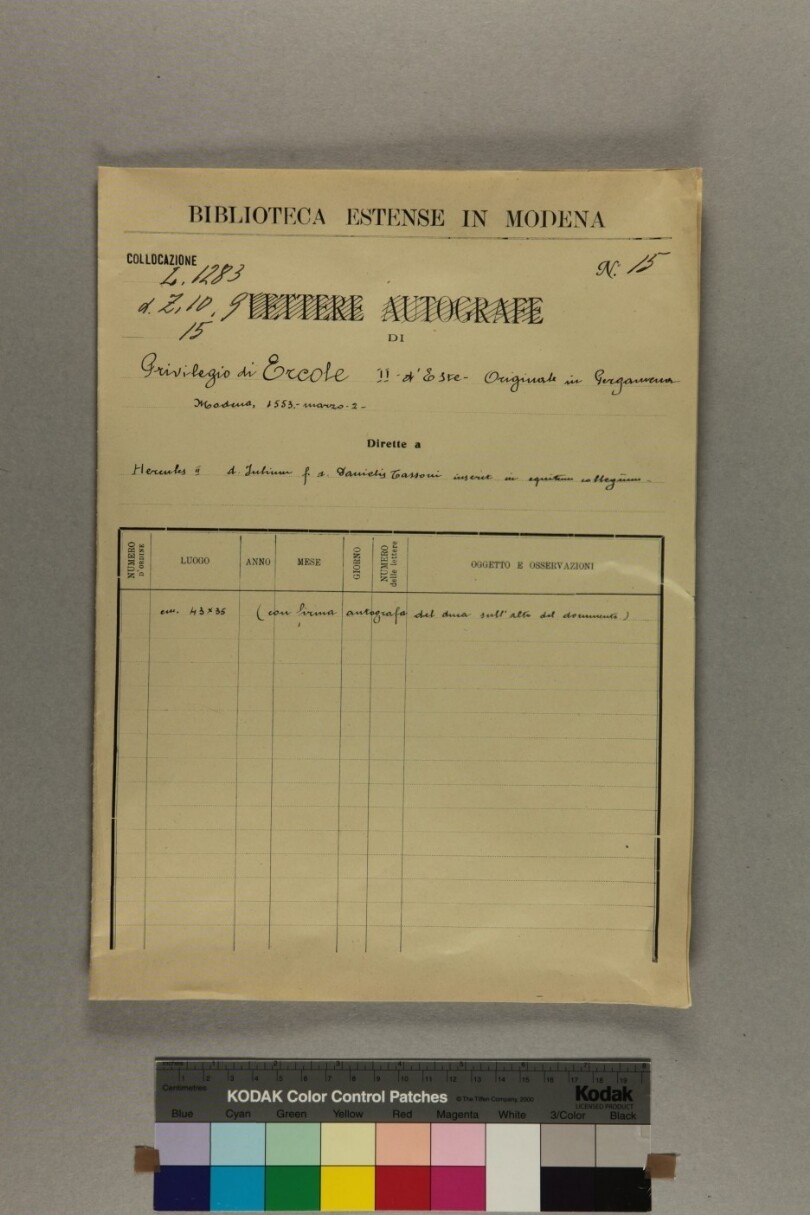 BIBLIOTECA ESTENSE IN MODENA
COLLOCAZIONE
L. 1283
N.° 15
d. Z. 10. 9
LETTERE AUTOGRAFE
15
DI
Privilegio di Ercole II d'Este - Originale in Pergamena
Modena, 1553 - marzo - 2 -
Dirette a
Hercules II d. Iulium f. s. Danielis Tassoni inserit in equitum collegium -
NUMERO D'ORDINE
LUOGO
ANNO
MESE
GIORNO
NUMERO delle lettere
OGGETTO E OSSERVAZIONI
cm. 43 × 35 (con firma autografa del duca sull'alto del documento)
Centimetres
KODAK Color Control Patches
© The Tiffen Company, 2000
Kodak
LICENSED PRODUCT
Blue Cyan Green Yellow Red Magenta White 3/Color Black